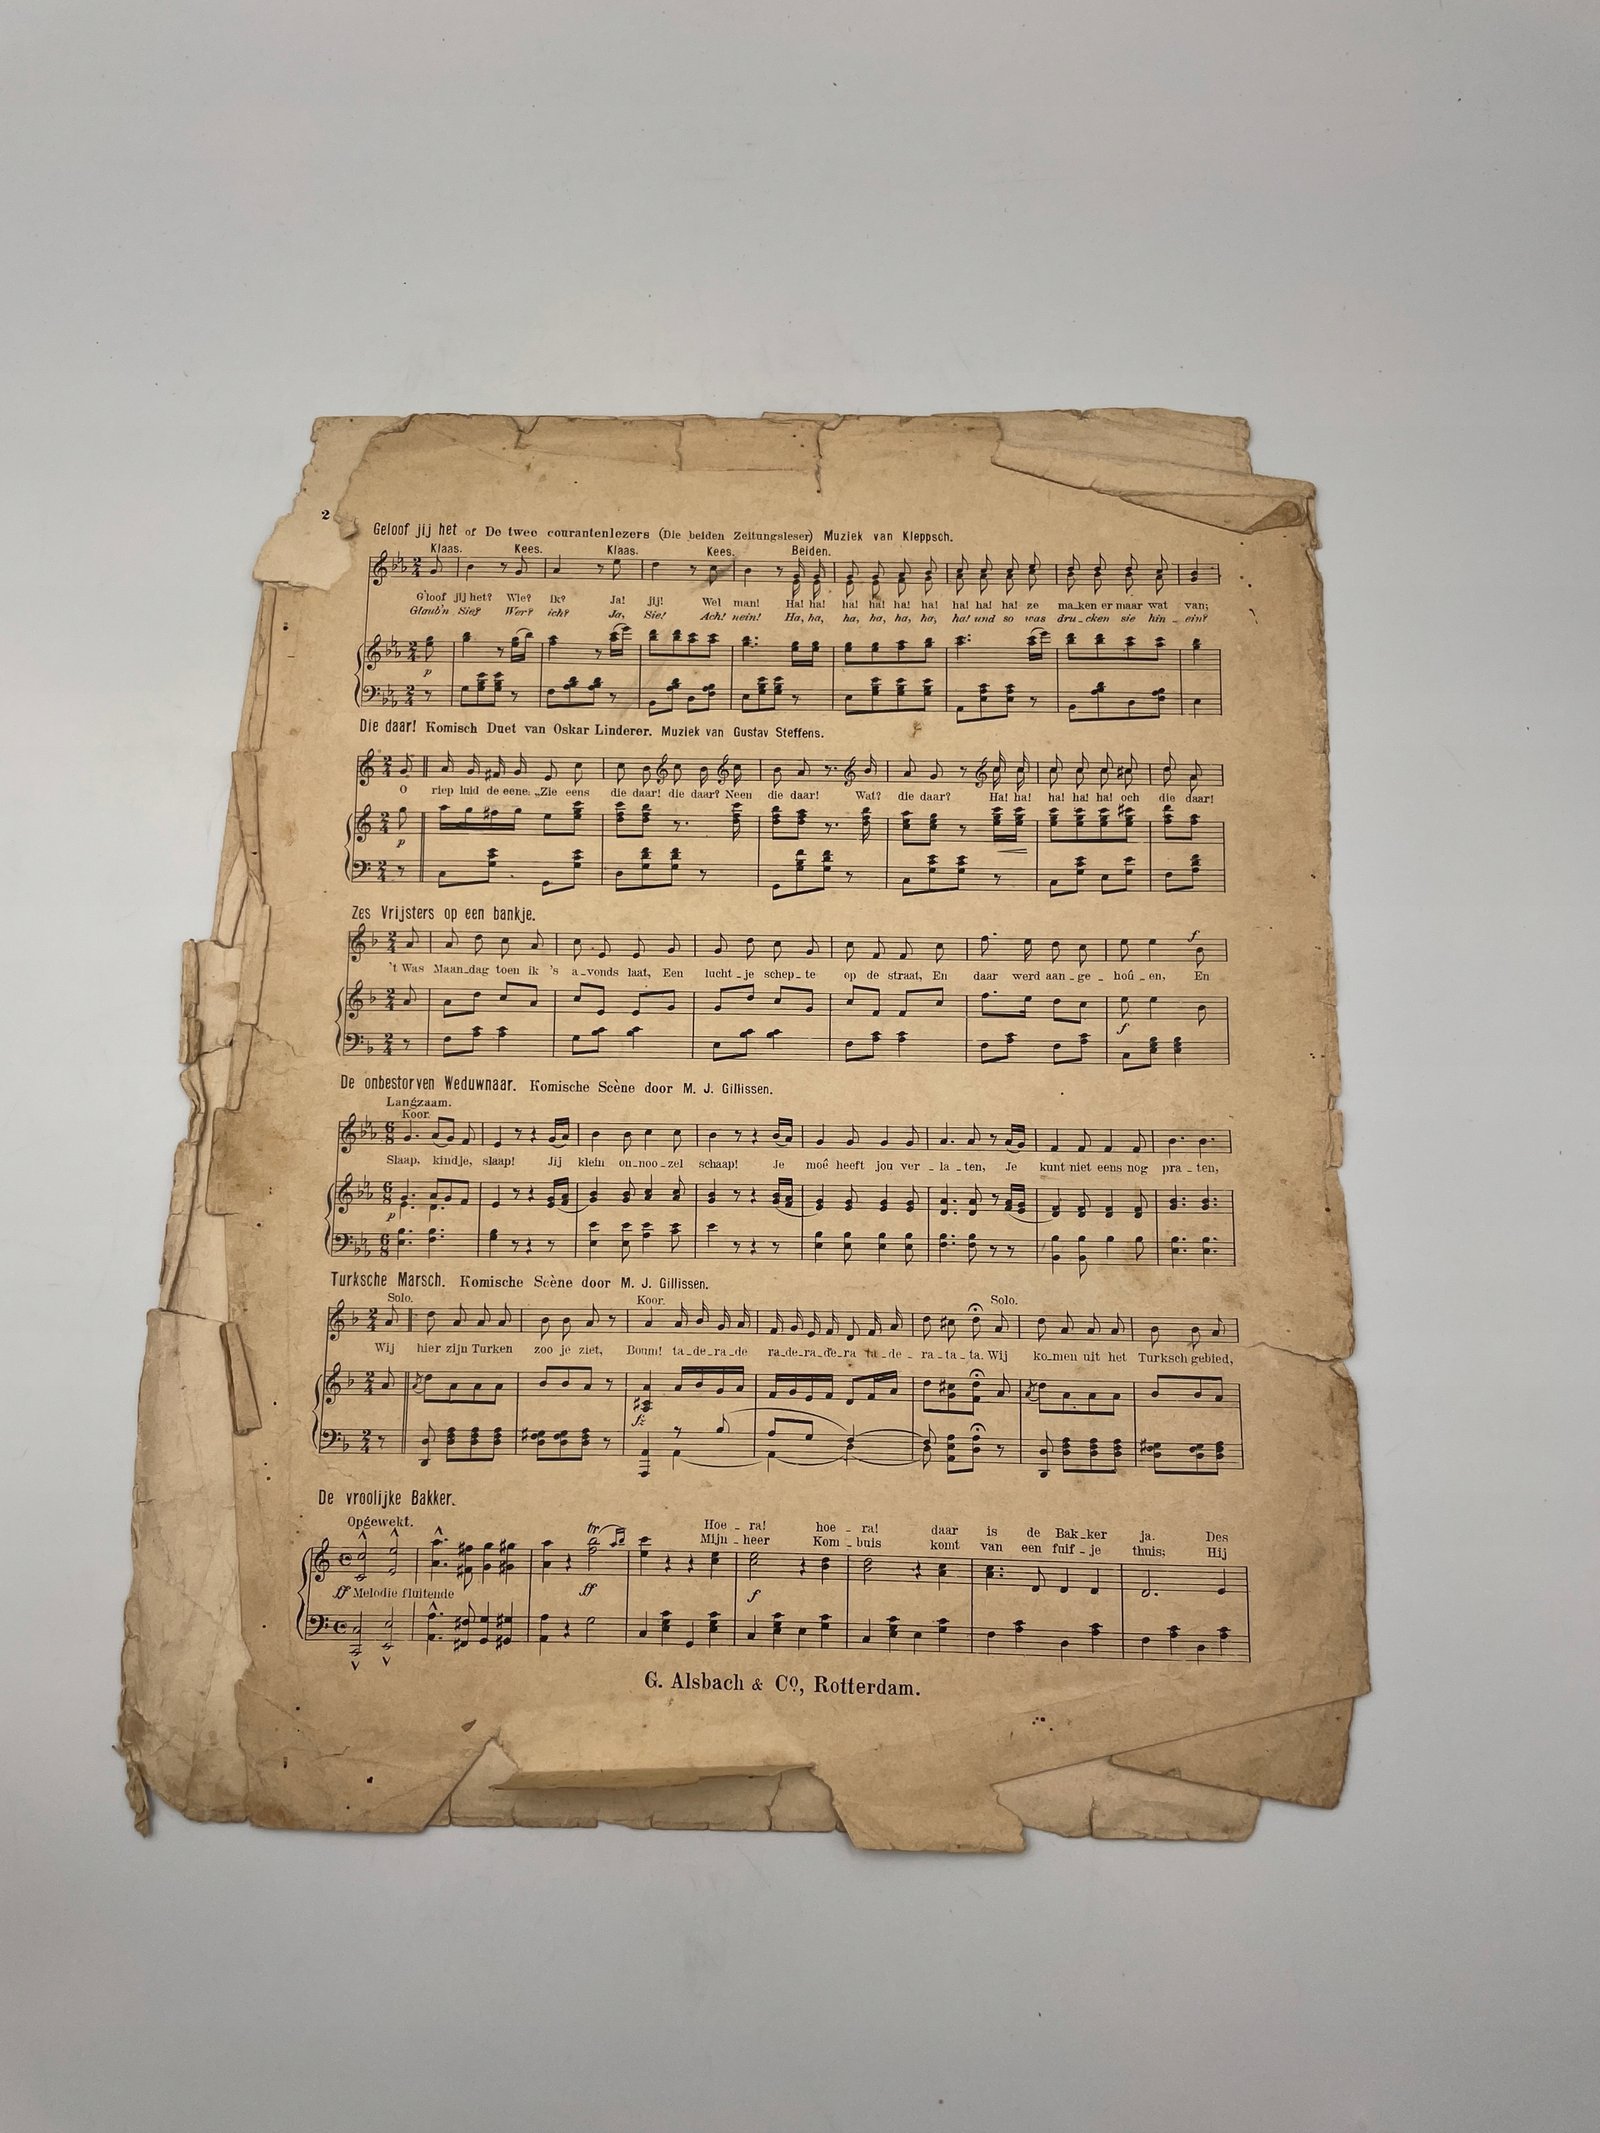 2
Geloof jij het of De twee courantenlezers (Die beiden Zeitungsleser) Muziek van Kleppsch.
Klaas. Kees. Klaas. Kees. Beiden.
G'loof jij het? Wie? ik? Ja! jij! Wel man! Ha! ha! ha! ha! ha! ha! ha! ha! ha! ze ma-ken er maar wat van;
Glaub'n Sie? Wer? ich? Ja, Sie! Ach! nein! Ha, ha, ha, ha, ha, ha, ha! und so was dru-cken sie hin-ein?
p
Die daar! Komisch Duet van Oskar Linderer. Muziek van Gustav Steffens.
O riep luid de eene: „Zie eens die daar! die daar? Neen die daar! Wat? die daar? Ha! ha! ha! ha! ha! och die daar!
p
Zes Vrijsters op een bankje.
f
't Was Maan-dag toen ik 's a-vonds laat, Een lucht-je schep-te op de straat, En daar werd aan-ge-hoû-en, En
f
De onbestorven Weduwnaar. Komische Scène door M. J. Gillissen.
Langzaam.
Koor.
Slaap, kindje, slaap! Jij klein on-noo-zel schaap! Je moê heeft jou ver-la-ten, Je kunt niet eens nog pra-ten,
p
Turksche Marsch. Komische Scène door M. J. Gillissen.
Solo. Koor. Solo.
Wij hier zijn Turken zoo je ziet, Boum! ta-de-ra-de ra-de-ra-de-ra ta-de-ra-ta-ta. Wij ko-men uit het Turksch gebied,
fz
De vroolijke Bakker.
Opgewekt. tr Hoe-ra! hoe-ra! daar is de Bak-ker ja. Des
Mijn-heer Kom-buis komt van een fuif-je thuis; Hij
ff Melodie fluitende ff f
G. Alsbach & Co., Rotterdam.